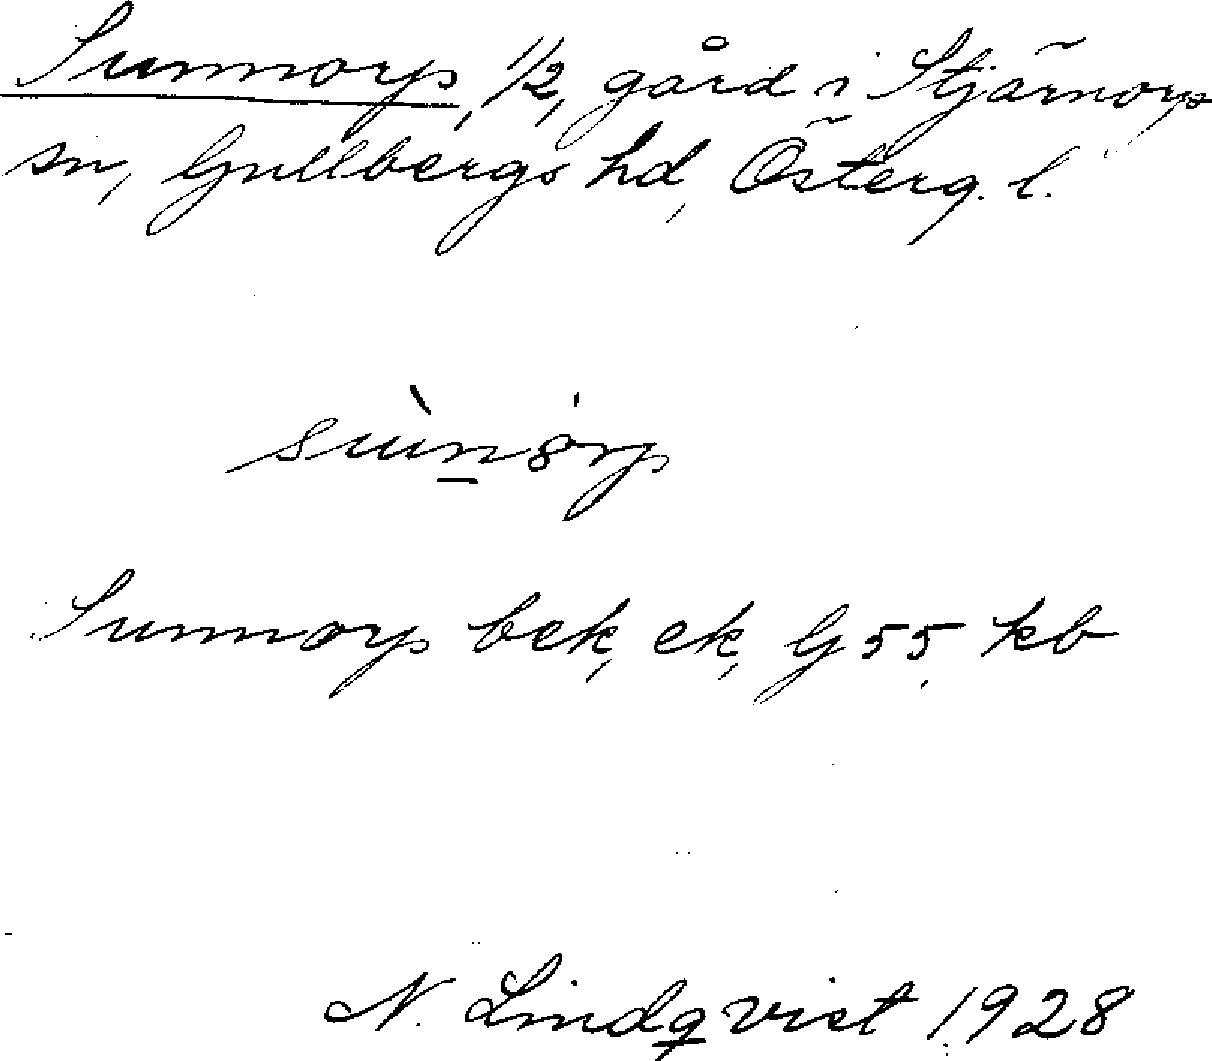 Sunnorp, 1/2, gård i Stjärnorps
sn, Gullbergs hd, Österg. l.
Sunnorp bek, ek, G 55, kb
N. Lindqvist 1928